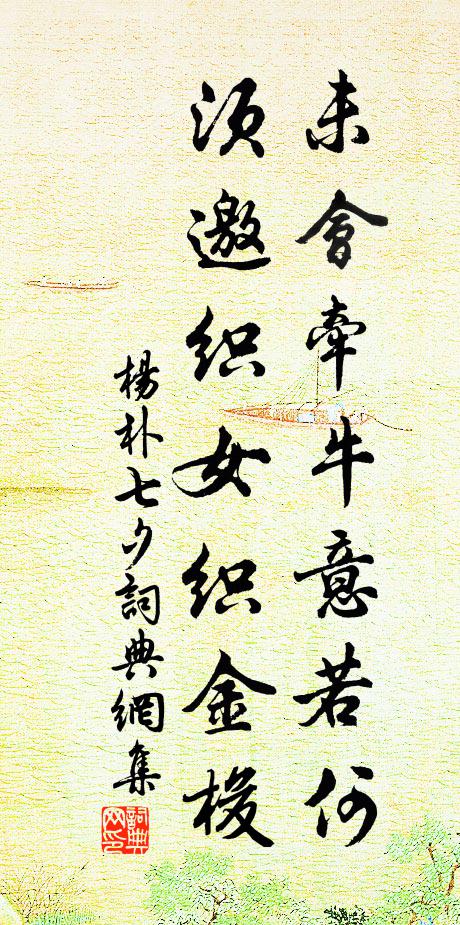 未會牽牛意若何
須邀織女織金梭
楊朴七夕詞典網集
詞典
网印